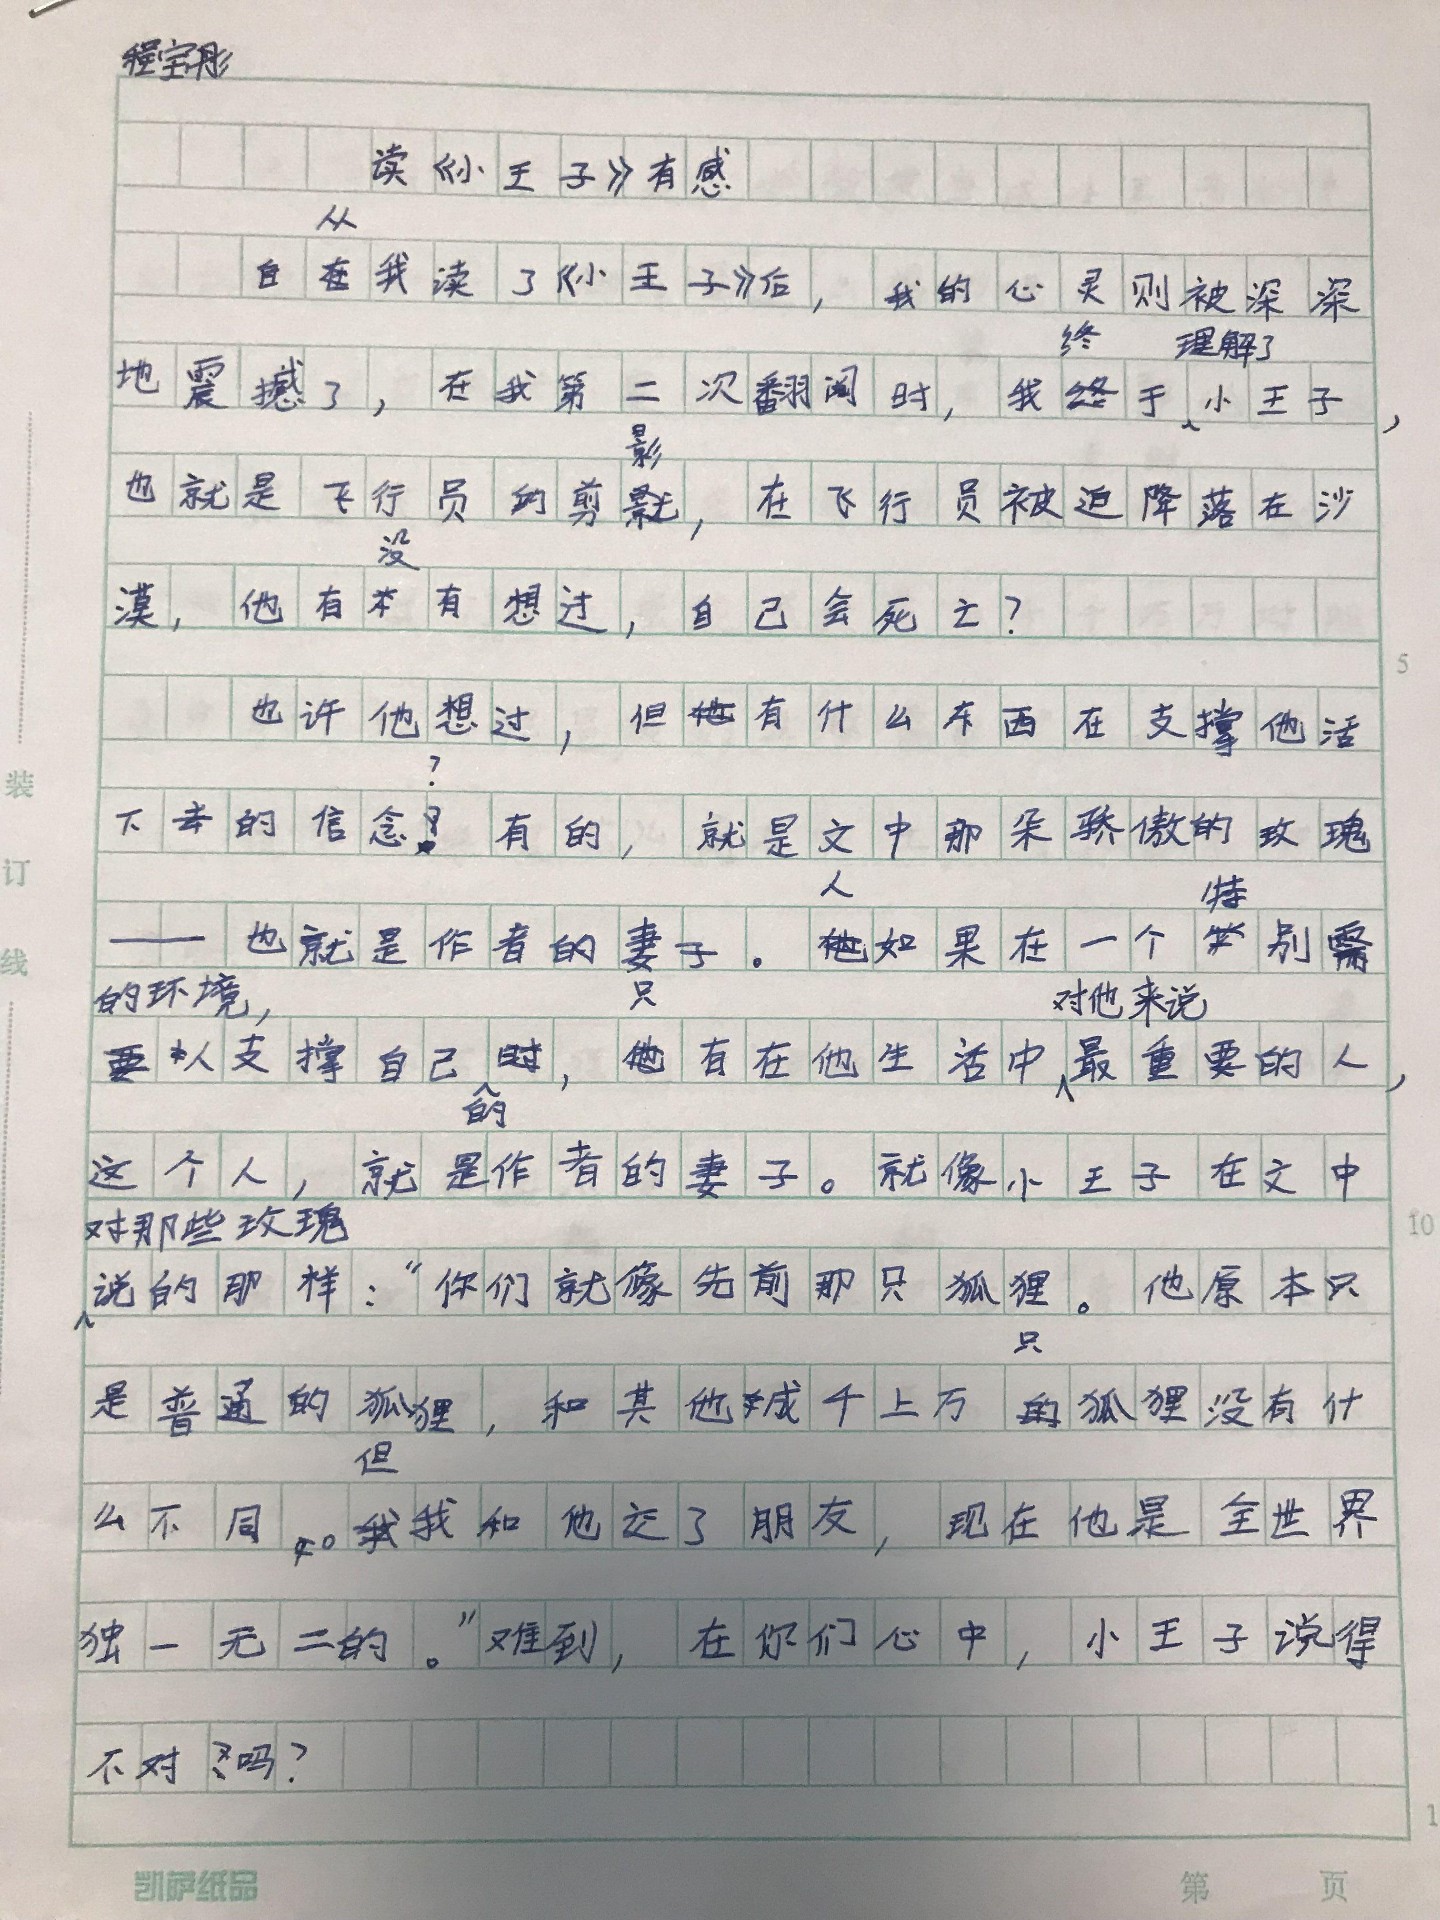 程宝彤
读《小王子》有感
从
自在我读了《小王子》后，我的心灵则被深深
终 理解了
地震撼了，在我第二次翻阅时，我终于小王子，
影
也就是飞行员的剪影，在飞行员被迫降落在沙
没
漠，他有本有想过，自己会死亡？
也许他想过，但他有什么东西在支撑他活
？
下去的信念？有的，就是文中那朵骄傲的玫瑰
人 特
——也就是作者的妻子。他如果在一个别需
的环境， 只 对他来说
要以支撑自己时，他有在他生活中最重要的人，
的
这个人，就是作者的妻子。就像小王子在文中
对那些玫瑰
说的那样：“你们就像先前那只狐狸。他原本只
只
是普通的狐狸，和其他成千上万的狐狸没有什
但
么不同。我我和他交了朋友，现在他是全世界
独一无二的。”难到，在你们心中，小王子说得
不对吗？
装
订
线
5
10
1
凯萨纸品
第 页